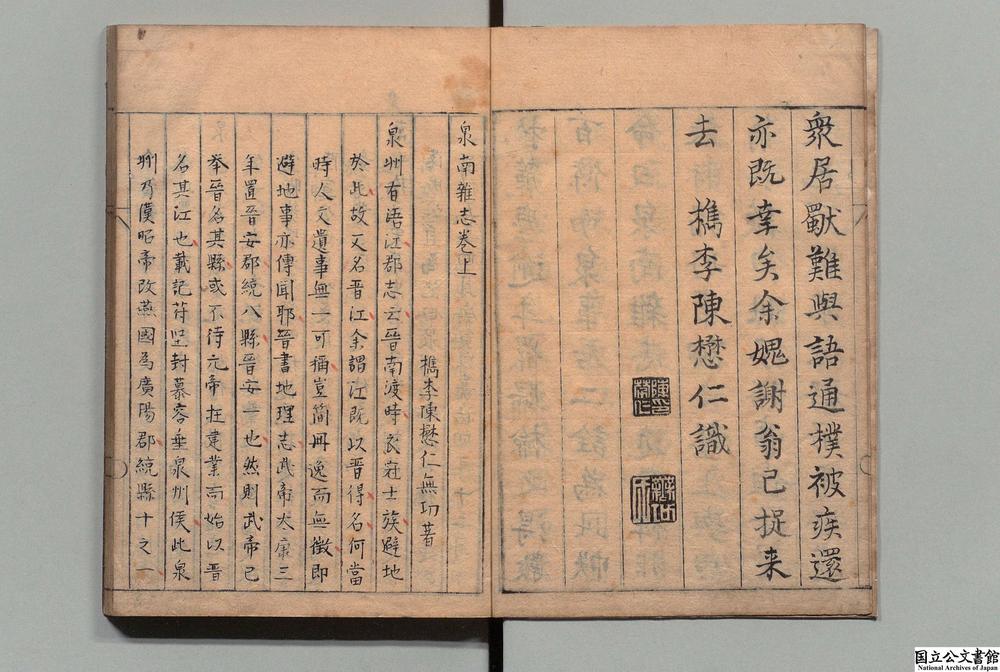 衆居獸難與語通襆被疾還
亦既幸矣余媿謝翁已捉来
去　檇李陳懋仁識
陳印懋仁
無功
泉南雜志卷上
檇李陳懋仁無功著
泉州有洛江郡志云晉南渡時衣冠士族避地
於此故又名晉江余謂江既以晉得名何當
時人文遺事無一可稱豈簡冊逸而無徴即
避地事亦傳聞耶晉書地理志武帝太康三
年置晉安郡統八縣晉安一也然則武帝已
举晉名其縣或不待元帝在建業而始以晉
名其江也載記苻坚封慕容垂泉州侯此泉
州乃漢昭帝改燕國為廣陽郡統縣十之一
国立公文書館
National Archives of Japan